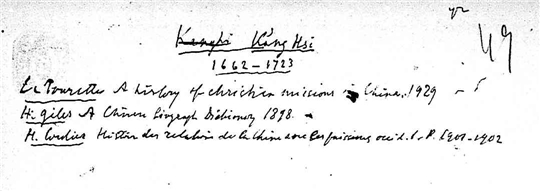 49
Kanghi Káng Hsi
1662-1723
La Tourette A history of christian missions in China. 1929
H. Giles A Chinese biograph Dictionary 1898.
H. Cordier Histoire des relations de la Chine avec les puissances occid. P. 1901-1902